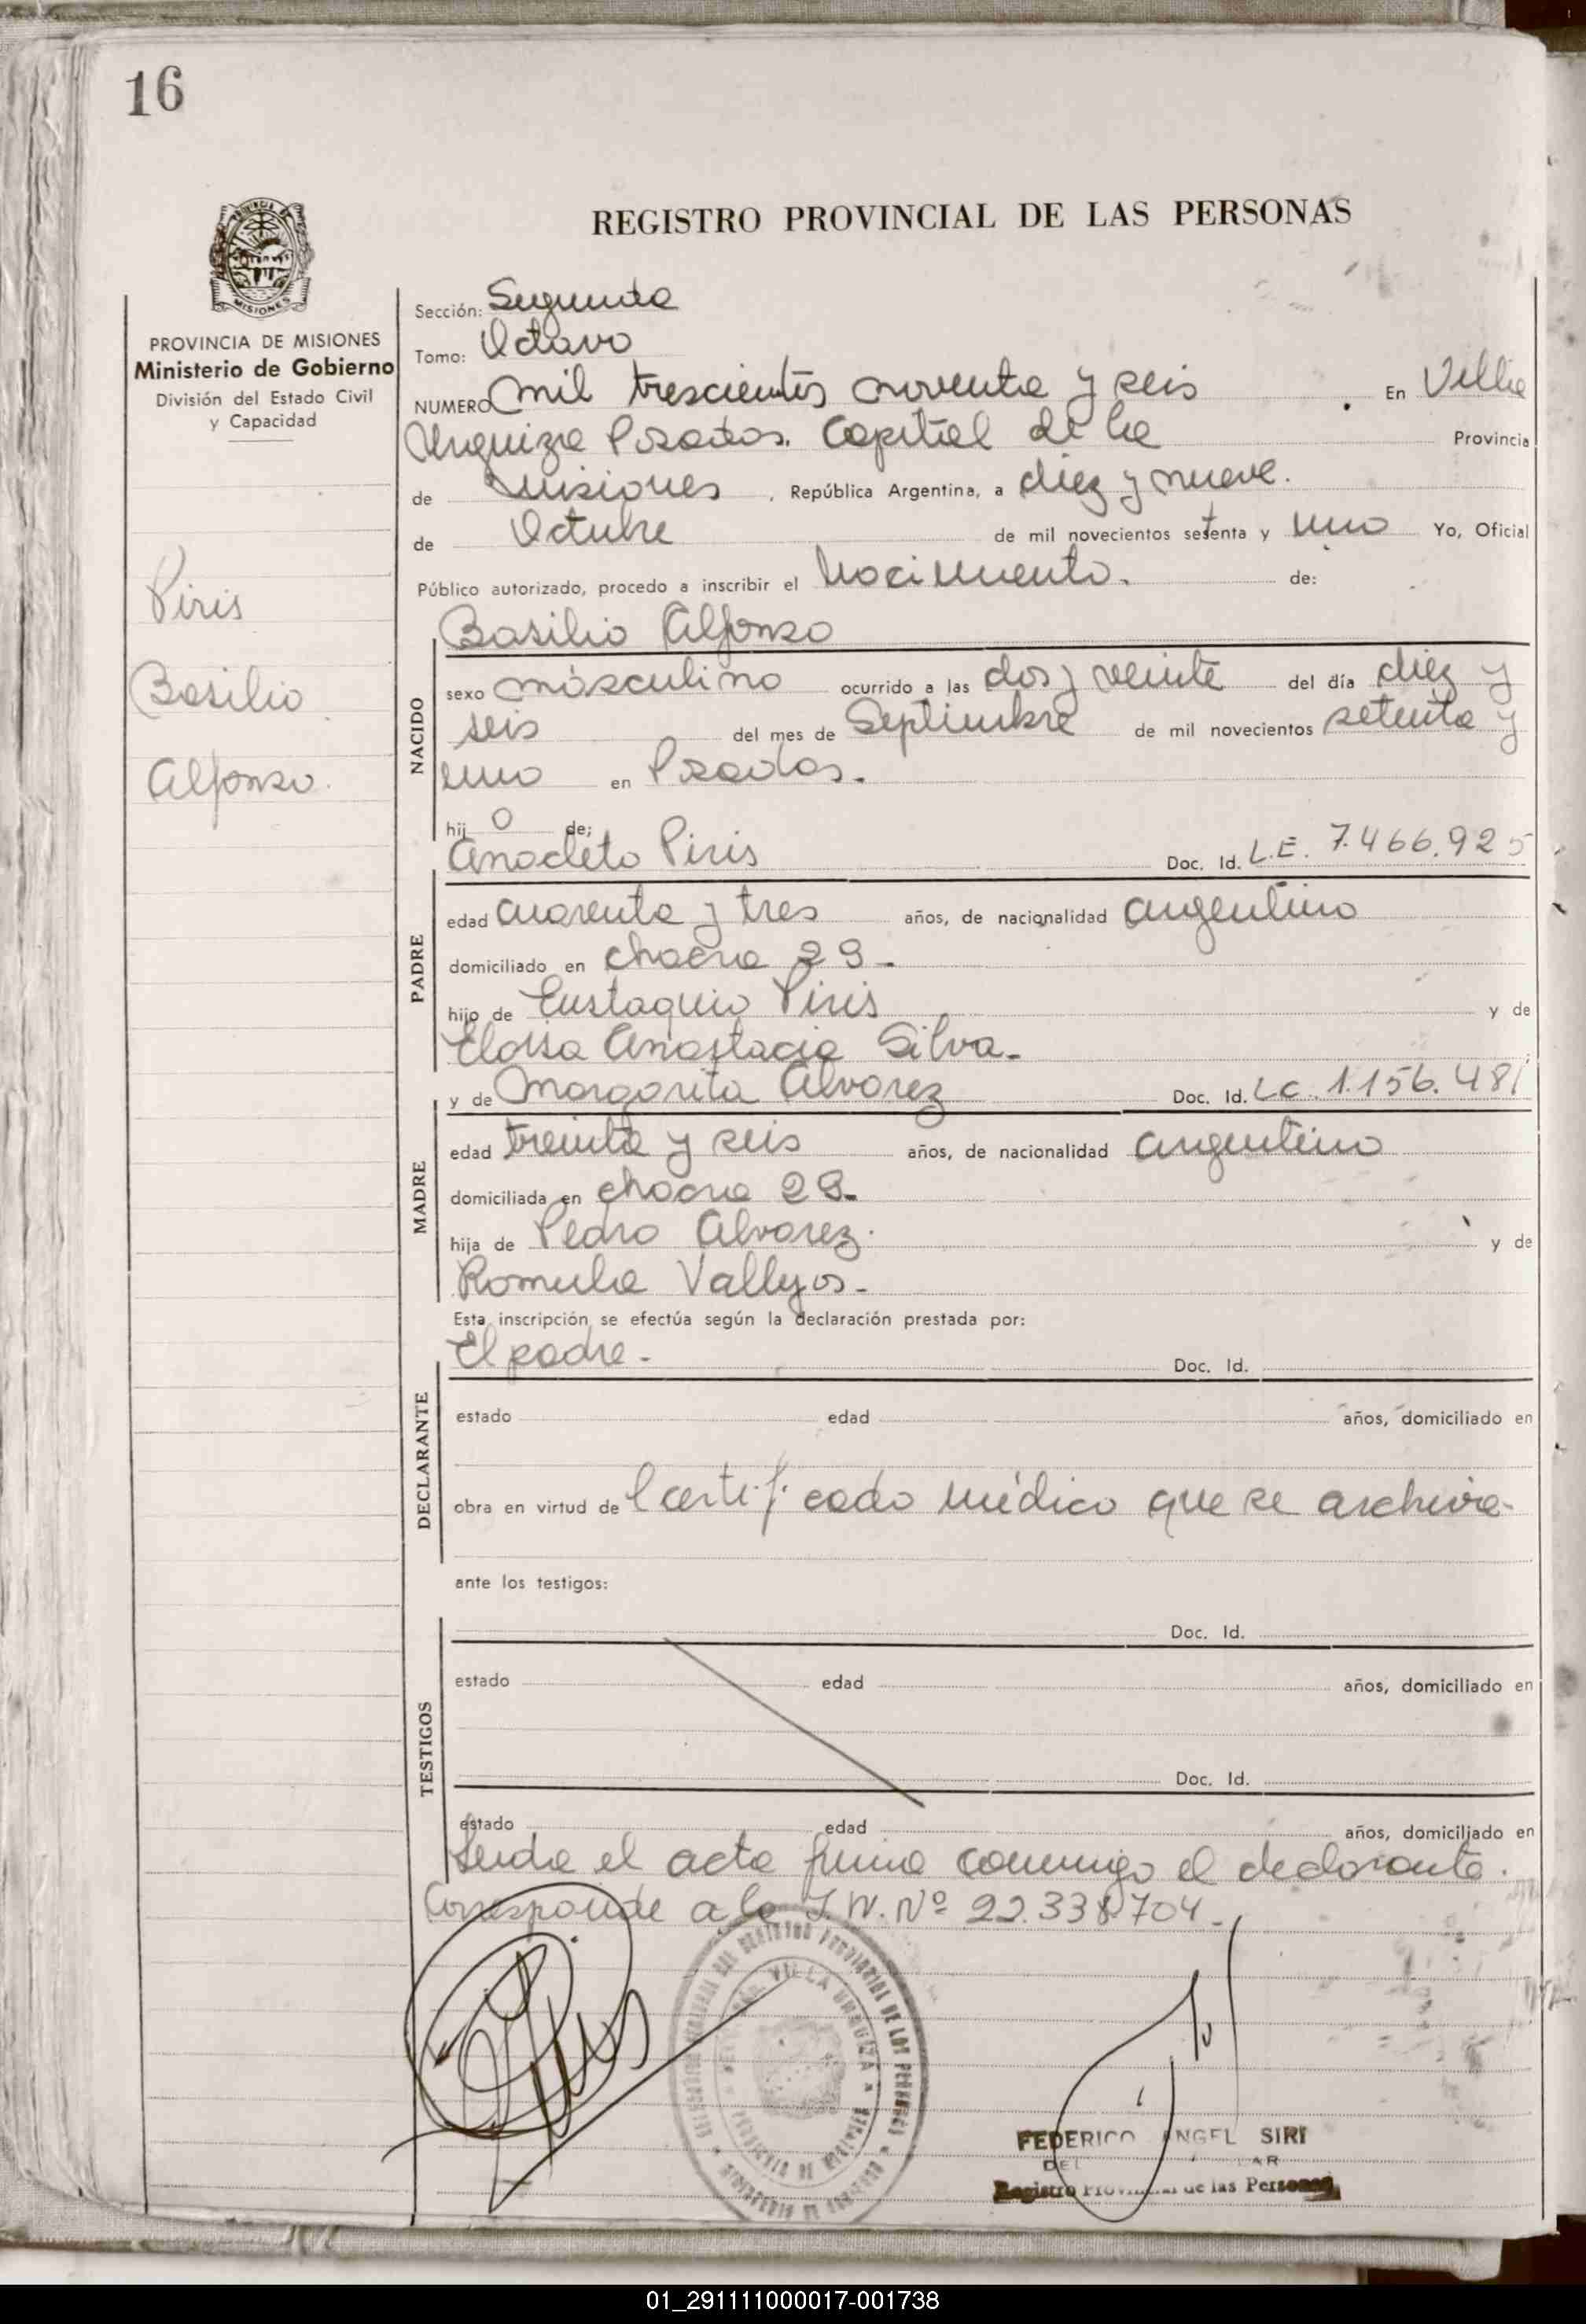 16
REGISTRO PROVINCIAL DE LAS PERSONAS
MISIONES
PROVINCIA DE MISIONES
Ministerio de Gobierno
División del Estado Civil
y Capacidad
Piris
Basilio
Alfonso.
Sección: Segunda
Tomo: Octavo
NUMERO mil trescientos noventa y seis En Villa
Urquiza Posadas. Capital de la Provincia
de Misiones, República Argentina, a diez y nueve.
de Octubre de mil novecientos setenta y uno Yo, Oficial
Público autorizado, procedo a inscribir el Nacimiento. de:
Basilio Alfonso
NACIDO
sexo másculino ocurrido a las dos y veinte del día diez y
seis del mes de Septiembre de mil novecientos setenta y
uno en Posadas.
hij o de;
Anacleto Piris Doc. Id. L.E. 7.466.925
PADRE
edad cuarenta y tres años, de nacionalidad argentino
domiciliado en chacra 29-
hijo de Eustaquio Piris y de
Eloisa Anastacia Silva-
y de Margarita Alvarez Doc. Id. LC. 1.156.481
MADRE
edad treinta y seis años, de nacionalidad argentino
domiciliada en chacra 29-
hija de Pedro Alvarez. y de
Romula Vallejos-
Esta inscripción se efectúa según la declaración prestada por:
El padre- Doc. Id.
DECLARANTE
estado edad años, domiciliado en
obra en virtud de l certificado médico que se archiva-
ante los testigos:
Doc. Id.
TESTIGOS
estado edad años, domiciliado en
Doc. Id.
estado edad años, domiciliado en
Leida el acta firma conmigo el declarante.
Corresponde a la I.N. Nº 22.338.704-
VILLA URQUIZA
FEDERICO ANGEL SIRI
Registro Provincial de las Personas
01_291111000017-001738